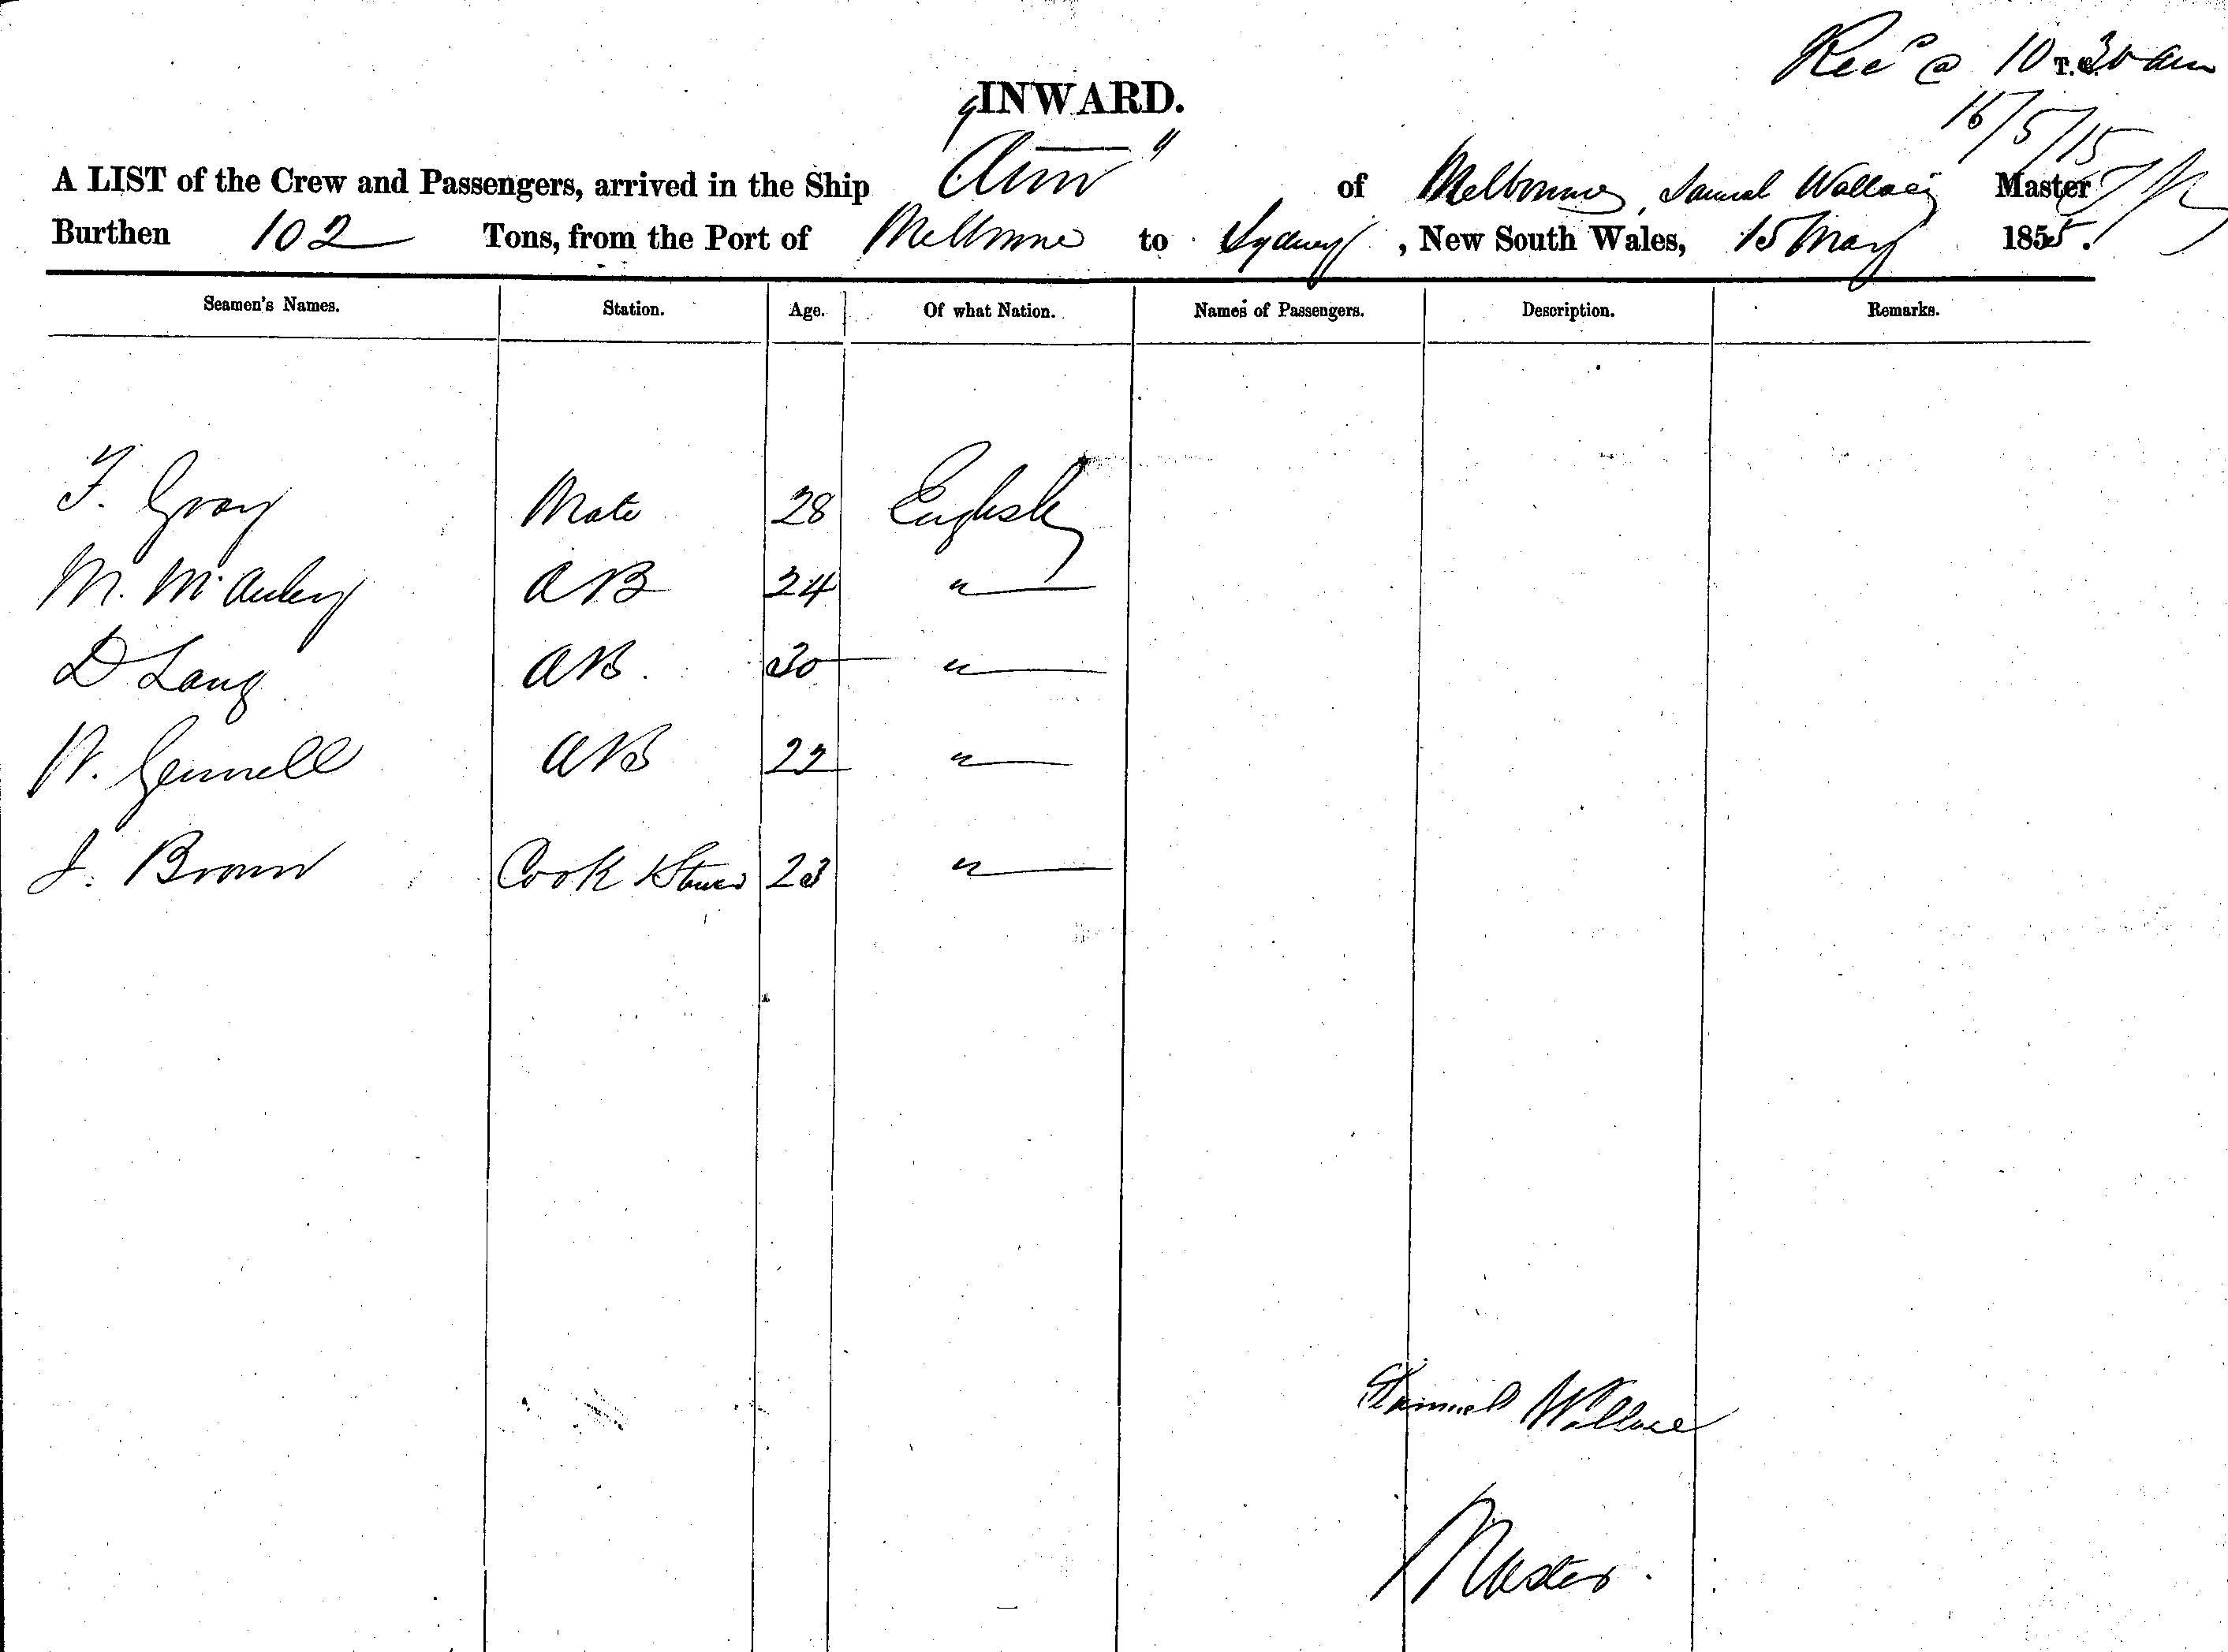 Recd @ 10.30 am
16/5/15
INWARD.
A LIST of the Crew and Passengers, arrived in the Ship "Ann" of Melbourne, Samuel Wallace Master
Burthen 102 Tons, from the Port of Melbourne to Sydney, New South Wales, 15 May 1855.
Seamen's Names. Station. Age. Of what Nation. Names of Passengers. Description. Remarks.
F. Gray Mate 28 English
M. McAuley AB 24 "
D Lang AB. 30 "
W. Gemmell AB 22 "
J. Brown Cook & Steward 23 "
Samuel Wallace
Master.